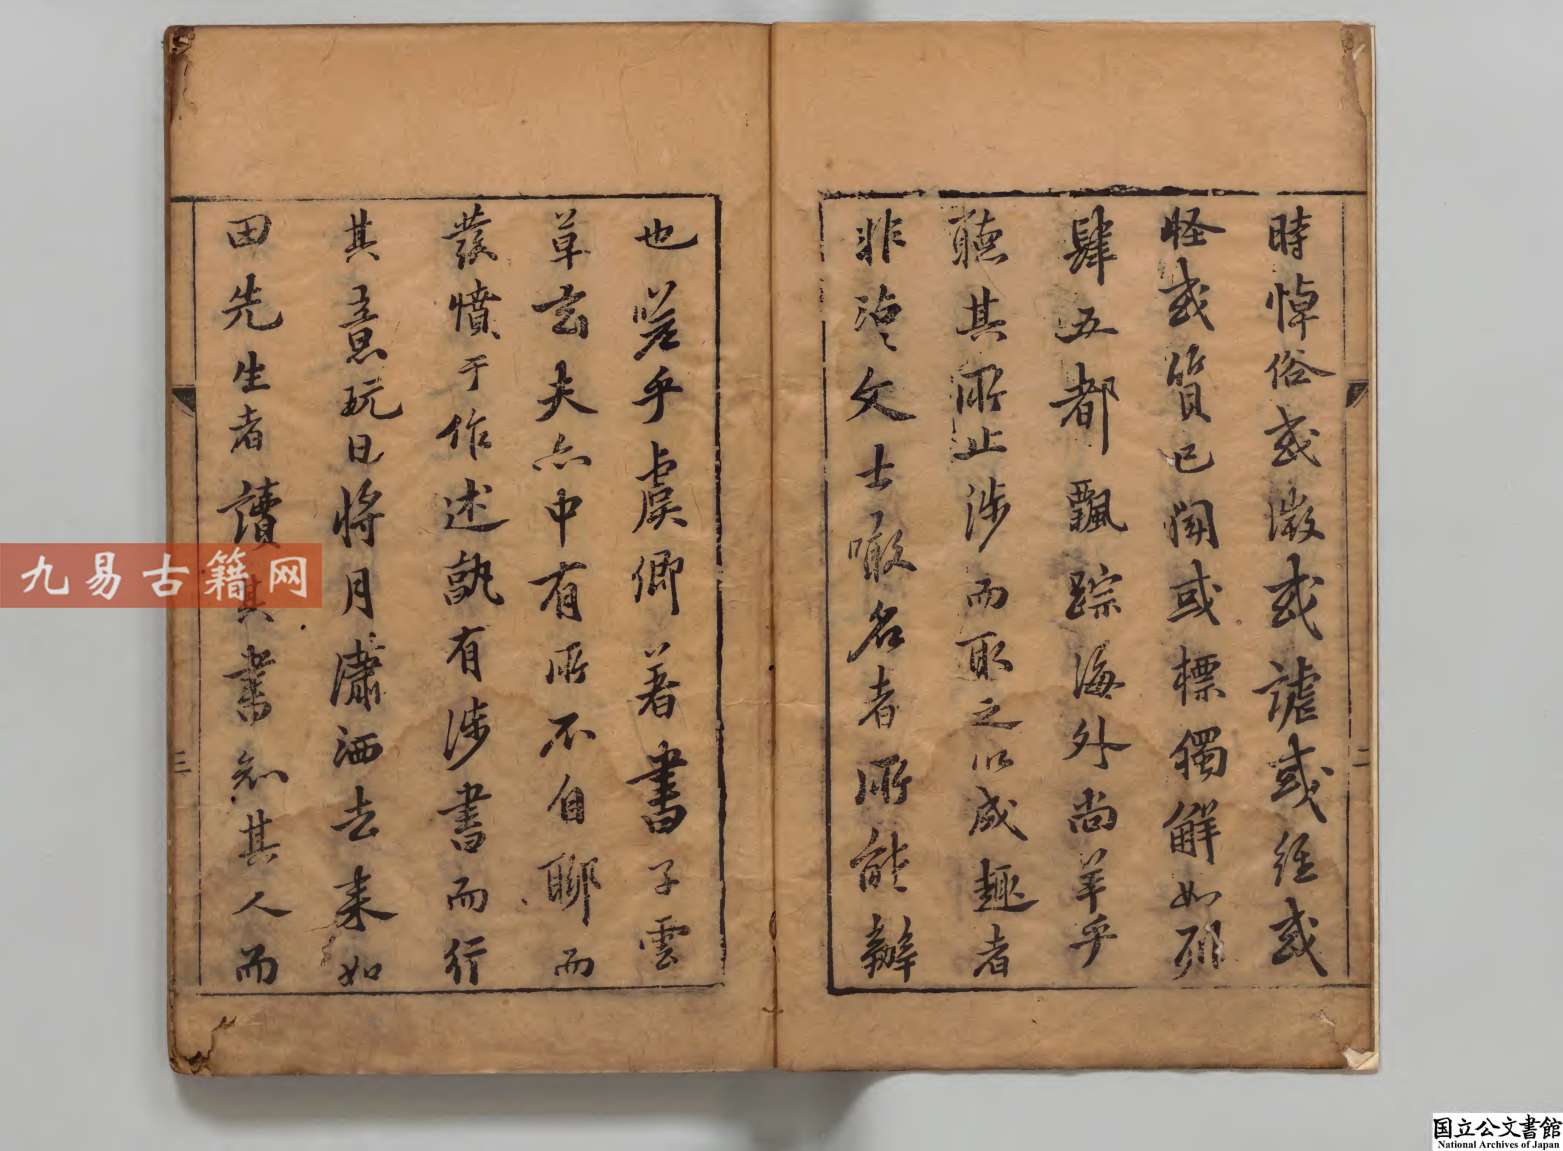 時悼俗或激或謔或経或
怪或質已闻或標獨解如列
肆五都飄踪海外尚羊乎
聽其所止涉而取之以咸趣者
非沾〻文士噉名者所能辦
二
也嗟乎虞卿著書子雲
草玄夫亦中有所不自聊而
發憤于作述孰有涉書而行
其意玩日将月瀟洒去来如
田先生者讀其書知其人而
三
九易古籍网
国立公文書館
National Archives of Japan